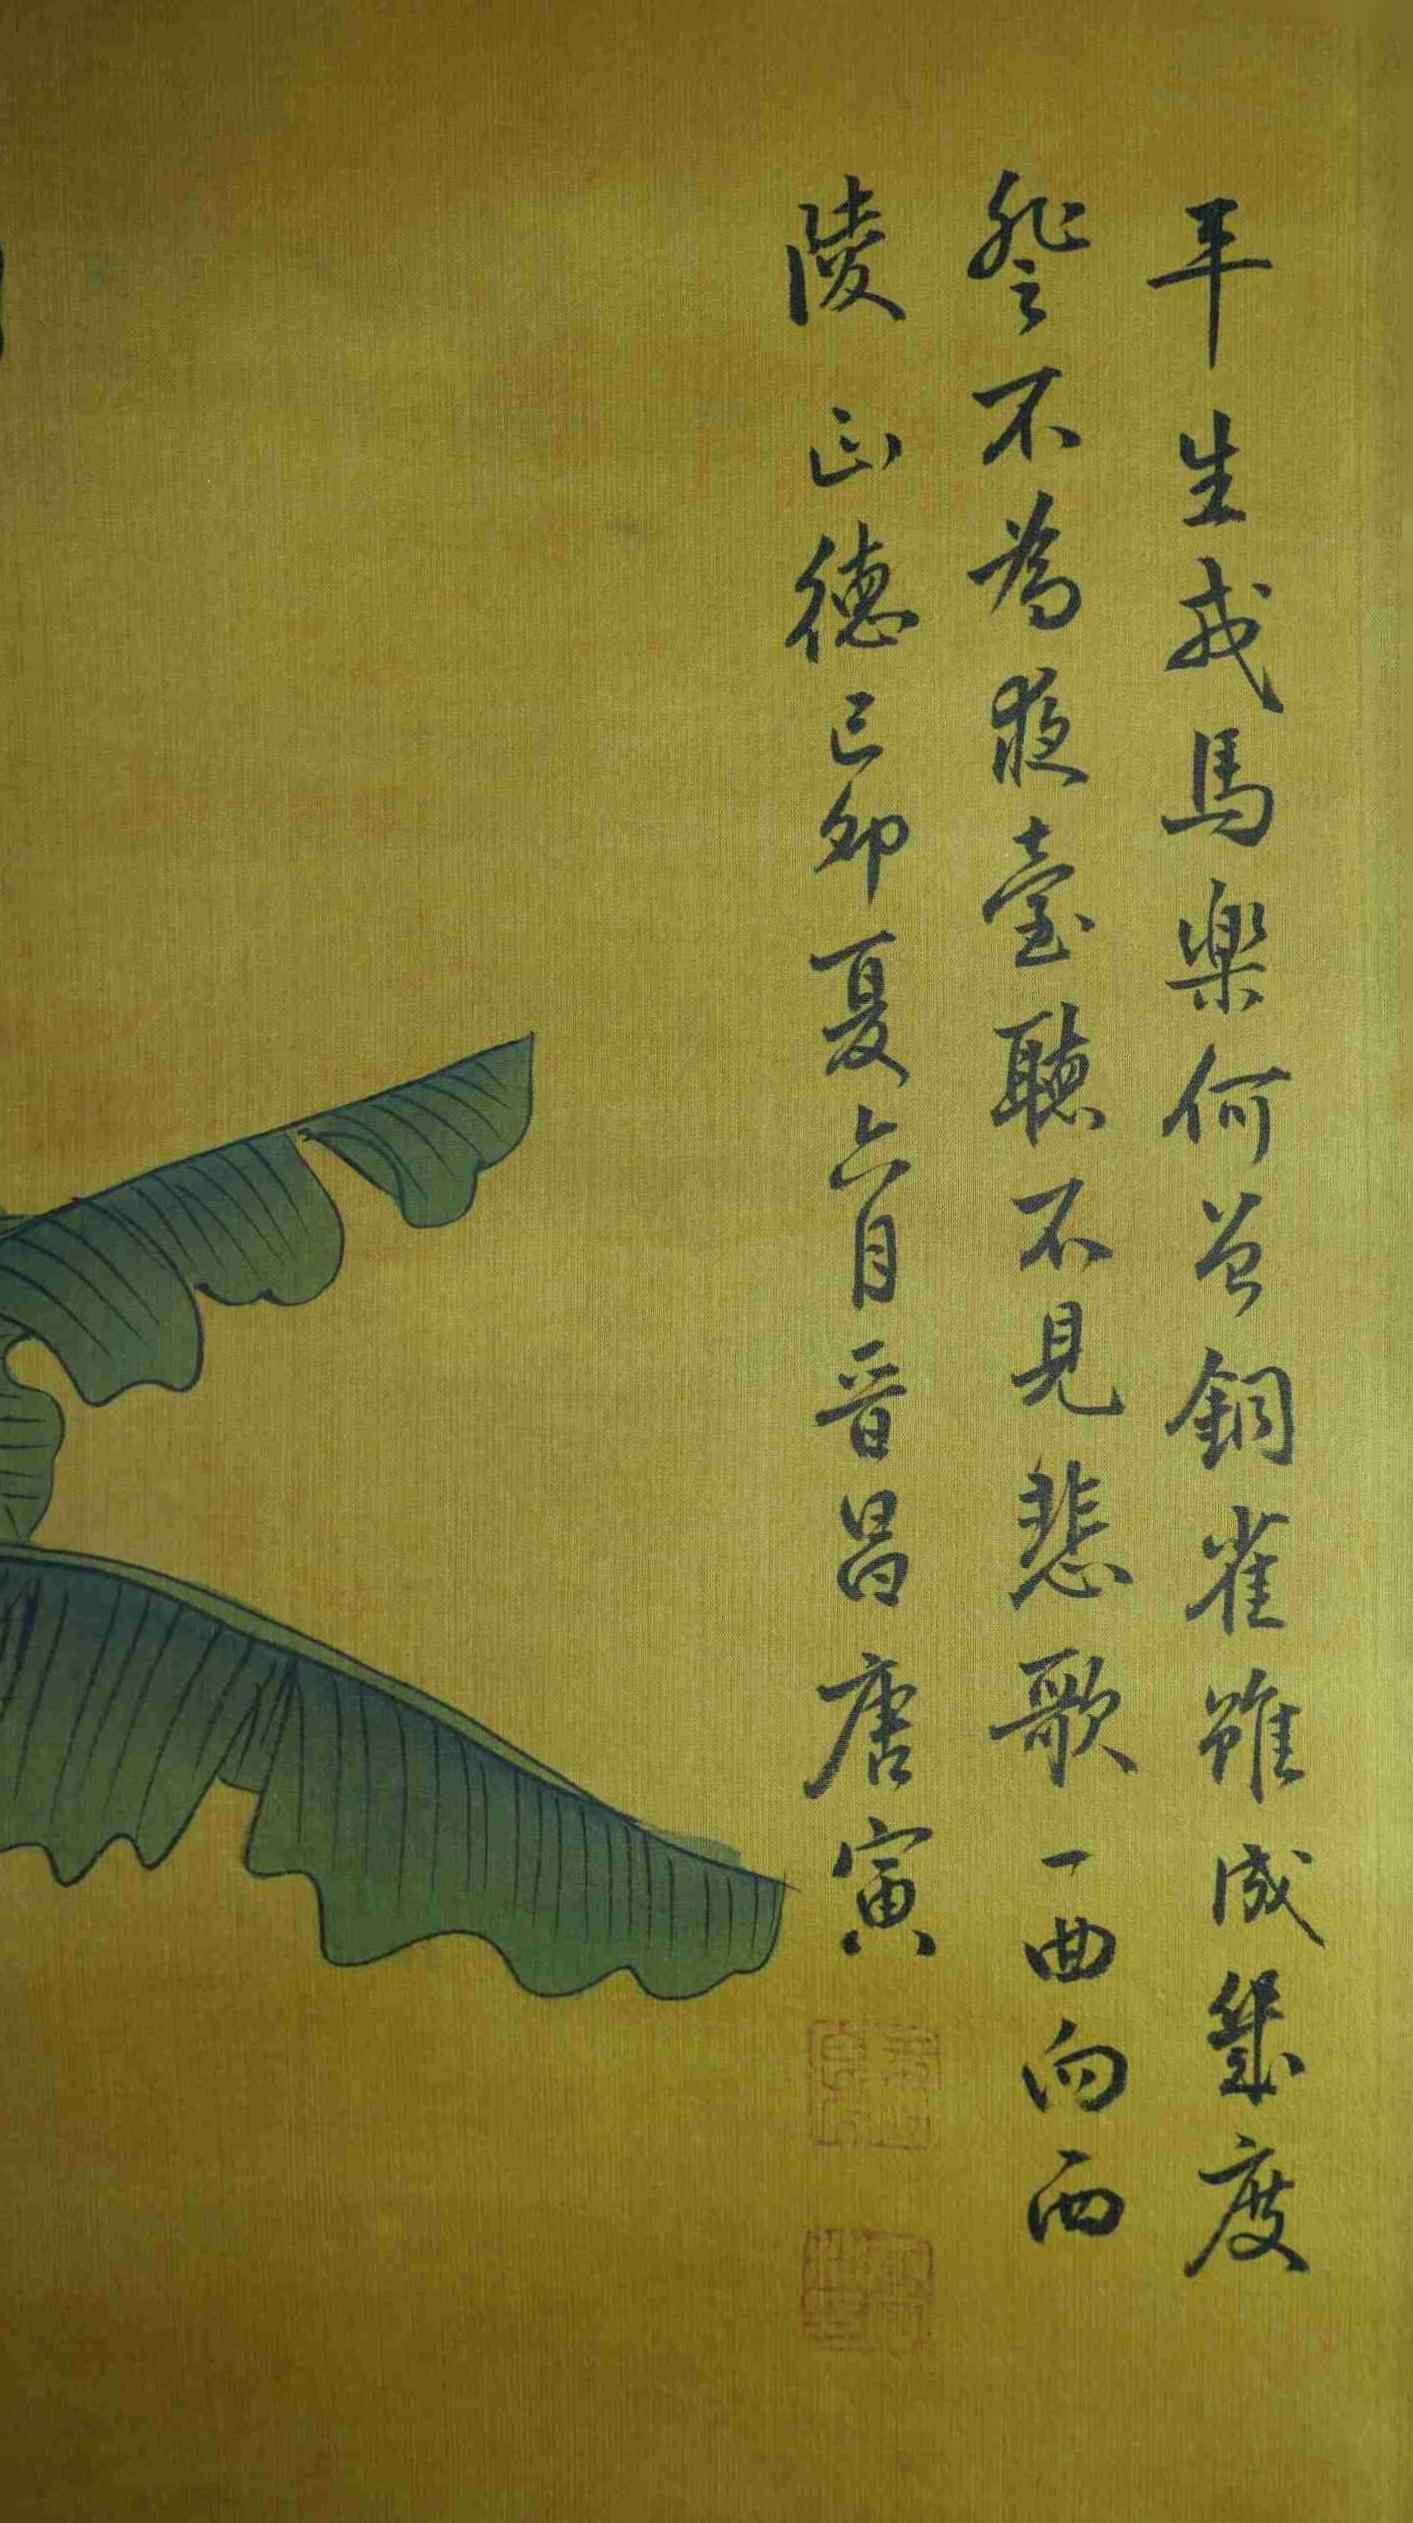 平生戎馬樂何曾銅雀雖成幾度
登不為夜臺聽不見悲歌一曲向西
陵 正德己卯夏六月晉昌唐寅